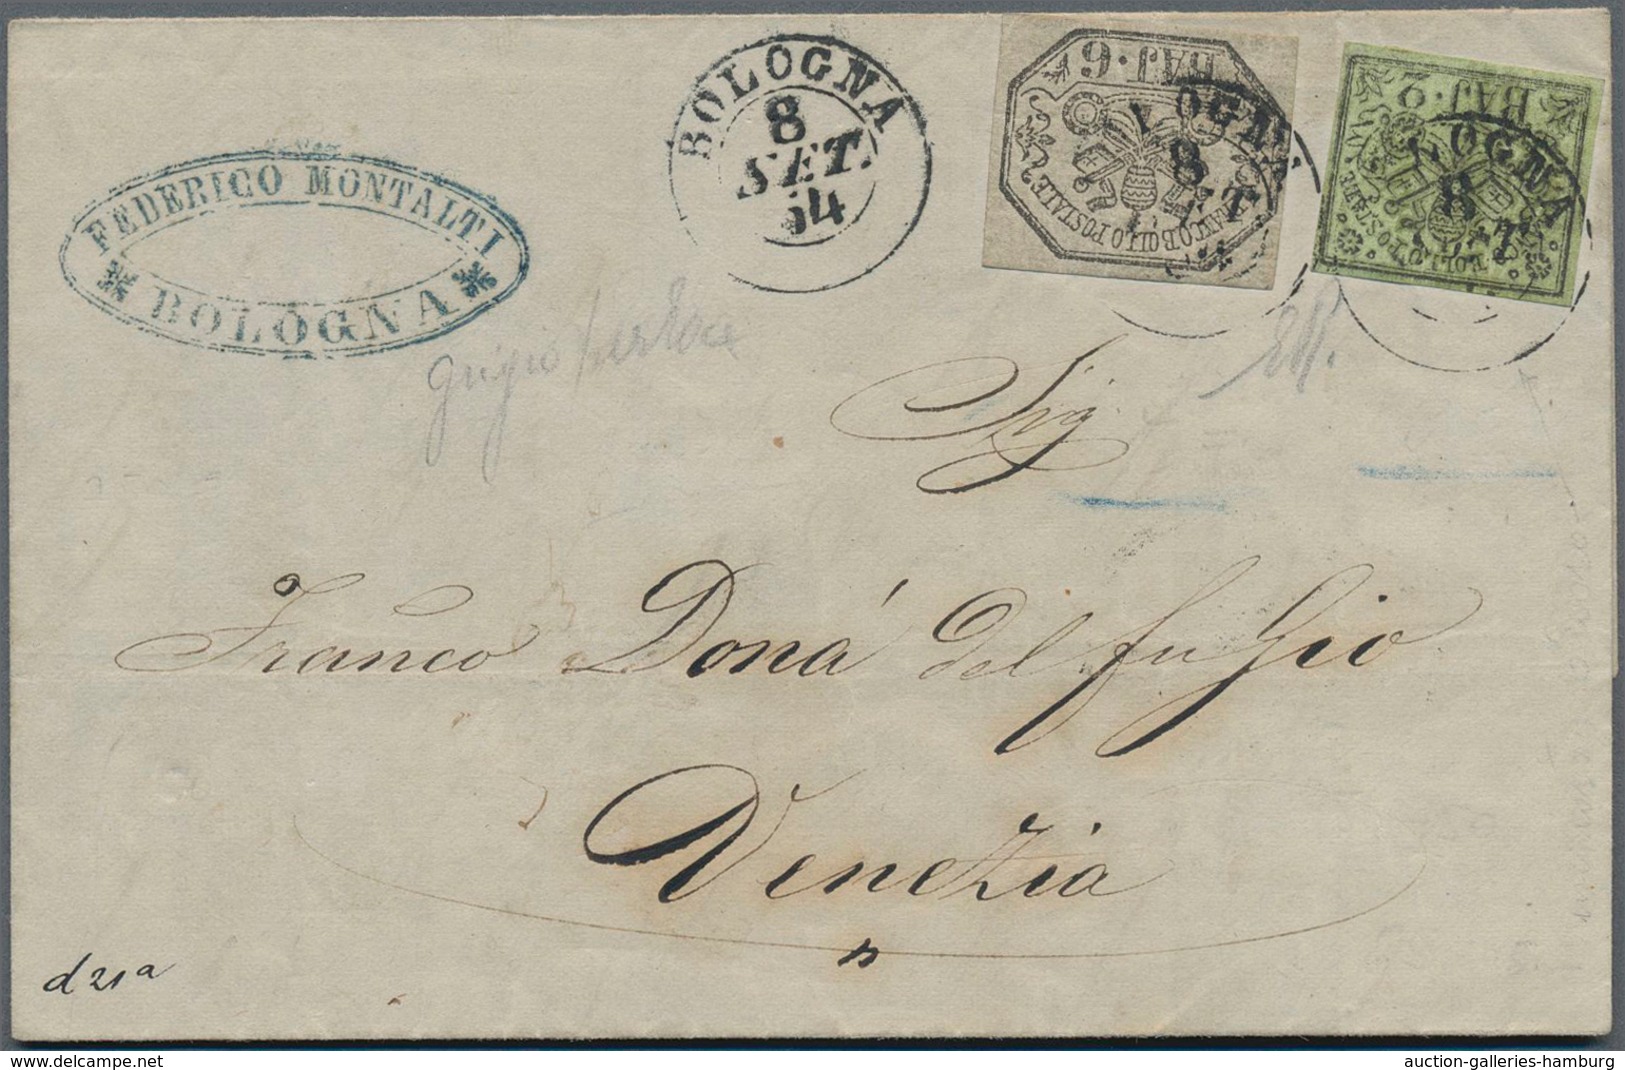 FEDERIGO MONTALTI
BOLOGNA
BOLOGNA
8
SET.
54
BAJ·6
FRANCO BOLLO POSTALE
OGNA
8
BAJ·2
BOLLO POSTALE
LOGNA
8
grigio perlaceo
Sig
Franco Doná del fu Gio
Venezia
d 21a
delcampe.net
auction-galleries-hamburg